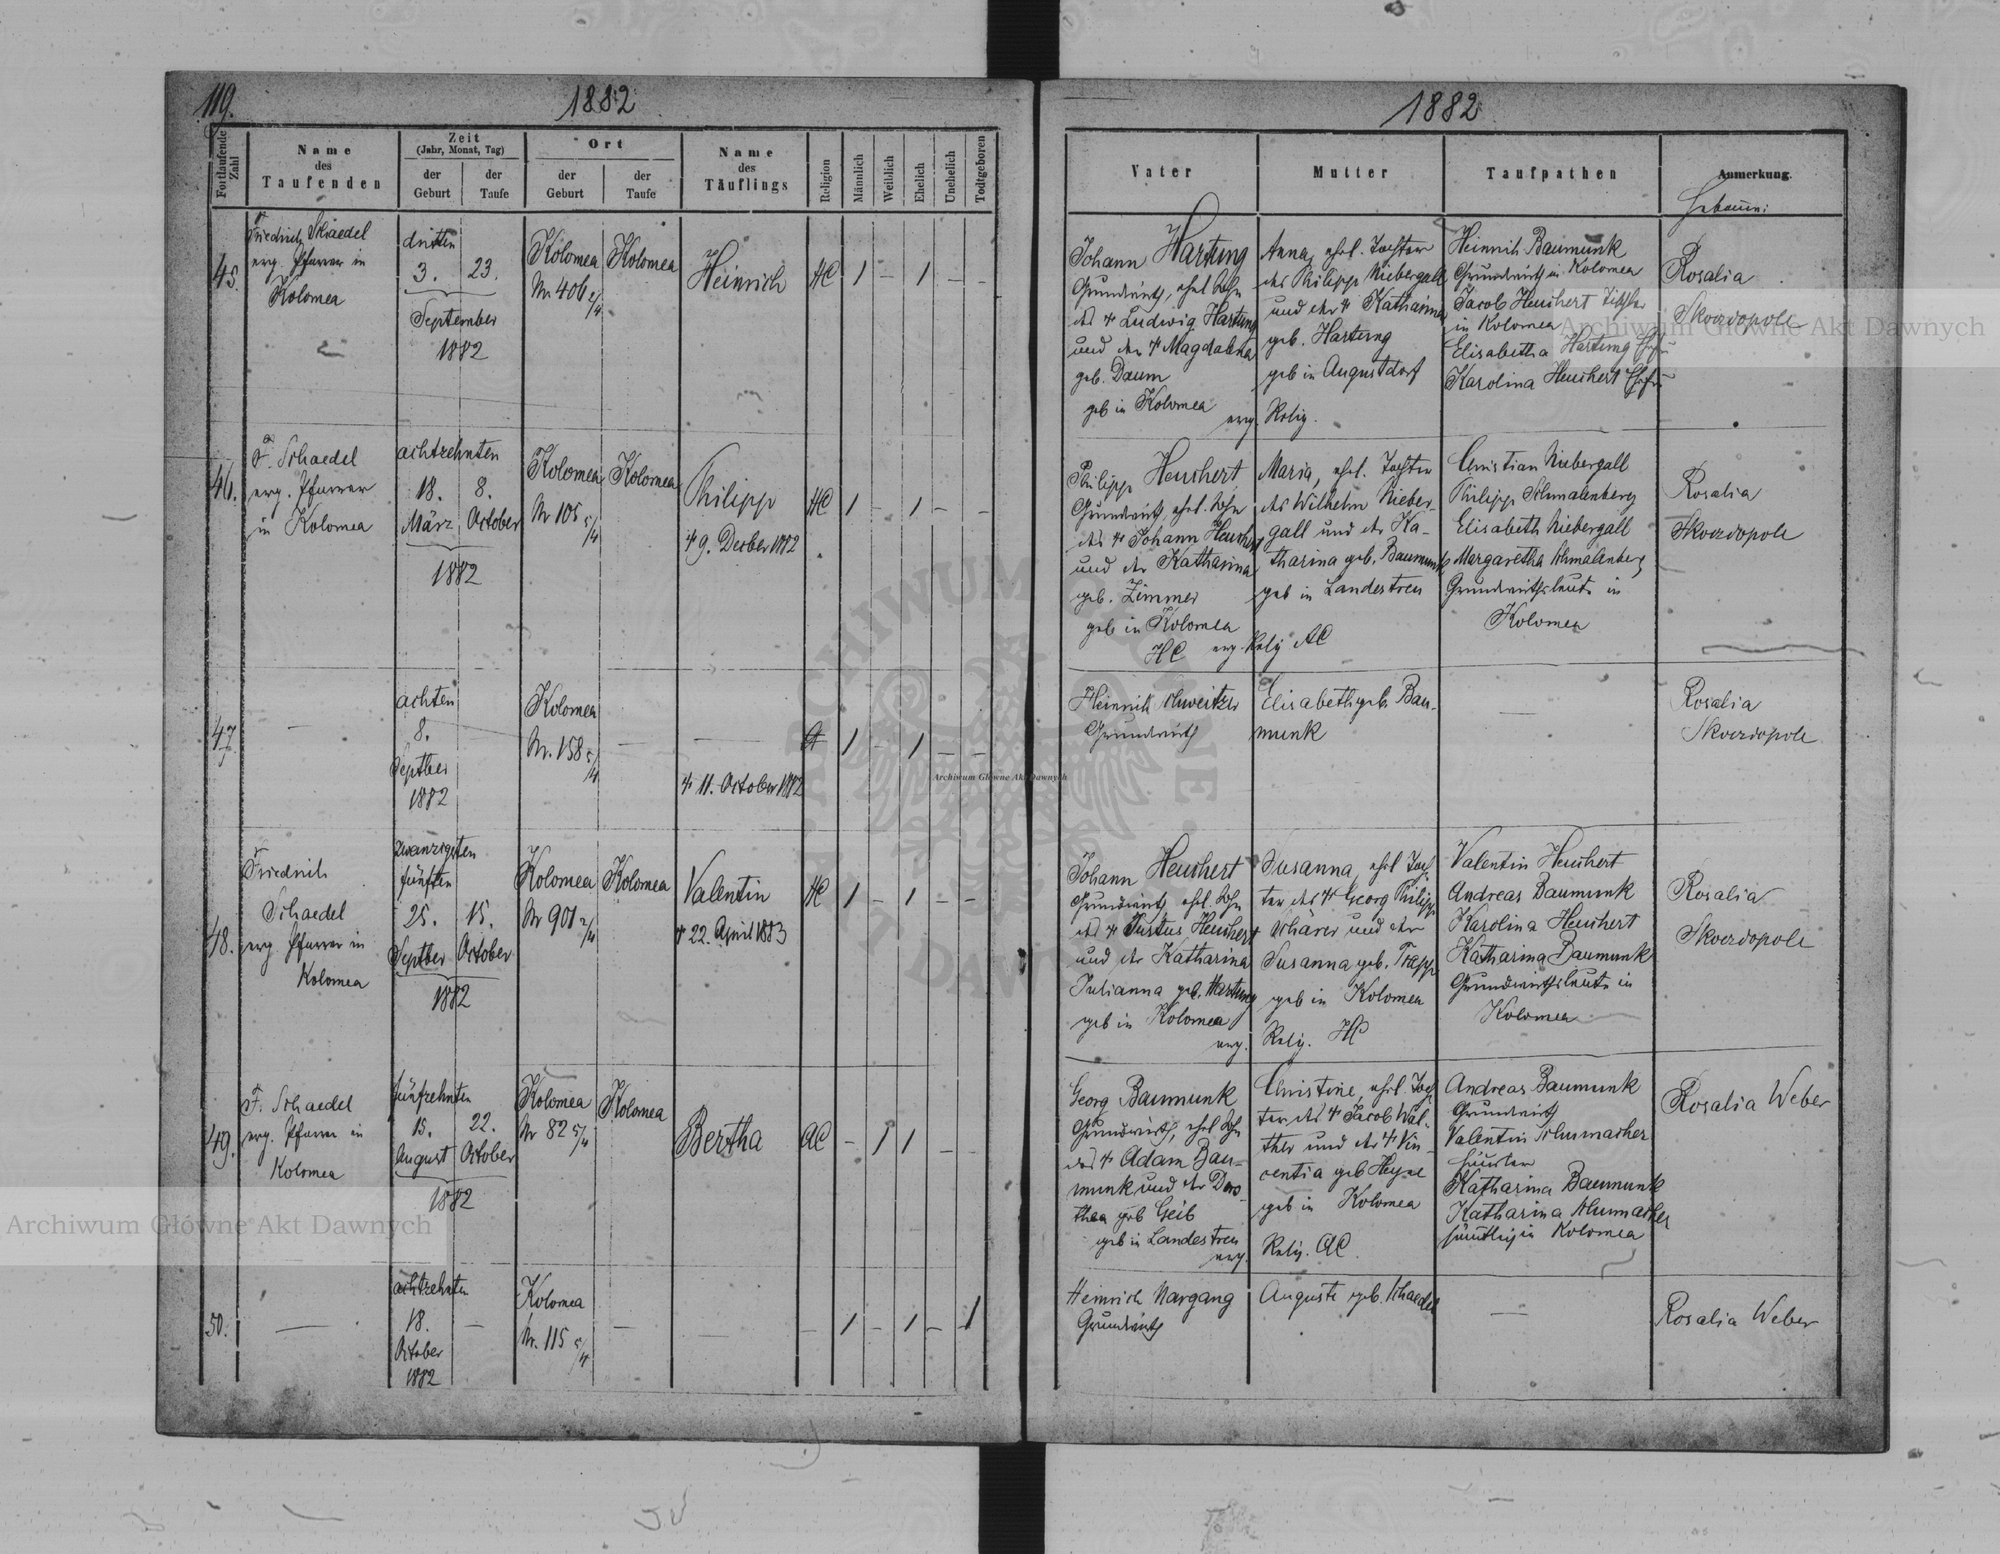 119.
1882
1882
Fortlaufende Zahl
Name des Taufenden
Zeit
(Jahr, Monat, Tag)
der Geburt
der Taufe
Ort
der Geburt
der Taufe
Name des Täuflings
Religion
Männlich
Weiblich
Ehelich
Unehelich
Todtgeboren
Vater
Mutter
Taufpathen
Anmerkung
45.
Friedrich Schaedel
erg. Pfarrer in
Kolomea
dritten
3.
23.
September
1882
Kolomea
Nr 406 2/4
Kolomea
Heinrich
HC
1
–
1
–
–
Johann Hartung
Grundwirth, ehel. Sohn
des † Ludwig Hartung
und der † Magdalena
geb. Daum
geb in Kolomea
erg.
Anna, ehel. Tochter
des Philipp Niebergall
und der † Katharina
geb. Hartung
geb in Augustdorf
Relig.
Heinrich Baumunk
Grundwirth in Kolomea
Jacob Heuchert Tischler
in Kolomea
Elisabetha Hartung
Karolina Heuchert
Rosalia
Skovdopole
46.
F. Schaedel
erg. Pfarrer
in Kolomea
achtzehnten
18.
8.
März
October
1882
Kolomea
Nr 105 5/4
Kolomea
Philipp
† 9. Decber 1882
HC
1
–
1
–
–
Philipp Heuchert
Grundwirth, ehel. Sohn
des † Johann Heuchert
und der Katharina
geb. Zimmer
geb in Kolomea
HC erg.
Maria, ehel. Tochter
des Wilhelm Nieber-
gall und der Ka-
tharina geb. Baumunk
geb in Landestreu
Relig AC
Christian Niebergall
Philipp Schmalenberg
Elisabeth Niebergall
Margaretha Schmalenberg
Grundwirthsleute in
Kolomea
Rosalia
Skovdopole
47.
–
achten
8.
Septber
1882
Kolomea
Nr. 158 5/4
–
–
† 11. October 1882
1
–
1
–
–
Heinrich Schweitzer
Grundwirth
Elisabeth geb. Bau-
munk
–
Rosalia
Skovdopole
48.
Friedrich
Schaedel
erg. Pfarrer in
Kolomea
zwanzigsten
fünften
25.
15.
Septber
October
1882
Kolomea
Nr 901 2/4
Kolomea
Valentin
† 22. April 1883
HC
1
–
1
–
–
Johann Heuchert
Grundwirth, ehel. Sohn
des † Justus Heuchert
und der Katharina
Julianna geb. Hartung
geb in Kolomea
erg.
Susanna, ehel Toch-
ter des † Georg Philipp
Schärer und der
Susanna geb. Trapp
geb in Kolomea
Relig. HC
Valentin Heuchert
Andreas Baumunk
Karolina Heuchert
Katharina Baumunk
Grundwirthsleute in
Kolomea
Rosalia
Skovdopole
49.
F. Schaedel
erg. Pfarrer in
Kolomea
fünfzehnten
15.
22.
August
October
1882
Kolomea
Nr 82 5/4
Kolomea
Bertha
AC
–
1
1
–
–
Georg Baumunk
Grundwirth, ehel Sohn
des † Adam Bau-
munk und der Doro-
thea geb Geib
geb in Landestreu
erg.
Christine, ehel Toch-
ter des † Jacob Wal-
ther und der † Vin-
centia geb Heyne
geb in Kolomea
Relig. AC.
Andreas Baumunk
Grundwirth
Valentin Schumacher
Katharina Baumunk
Katharina Schumacher
sämtlich in Kolomea
Rosalia Weber
50.
–
achtzehnten
18.
–
October
1882
Kolomea
Nr. 115 5/4
–
–
–
1
–
1
–
1
Heinrich Nargang
Grundwirth
Auguste geb. Schaedel
–
Rosalia Weber
Archiwum Główne Akt Dawnych
Archiwum Główne Akt Dawnych
Archiwum Główne Akt Dawnych